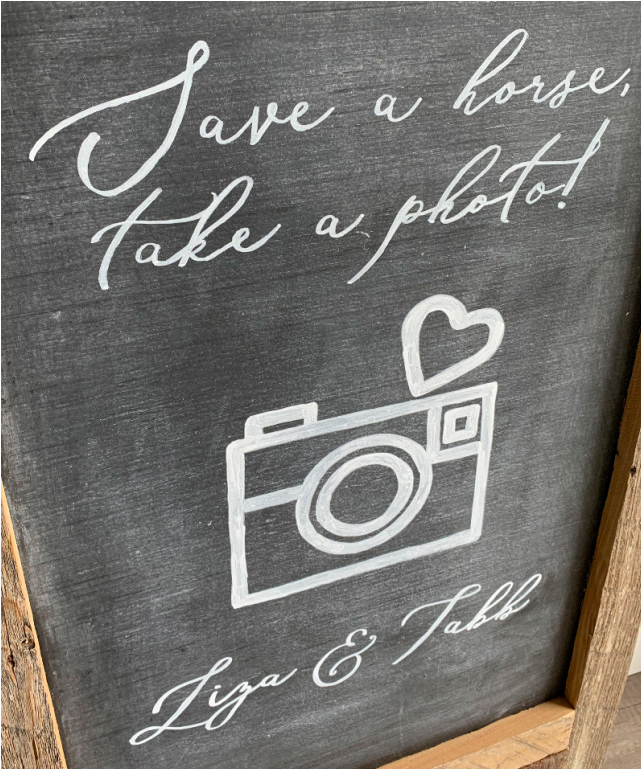 Save a horse,
take a photo!
Liza & Tabb